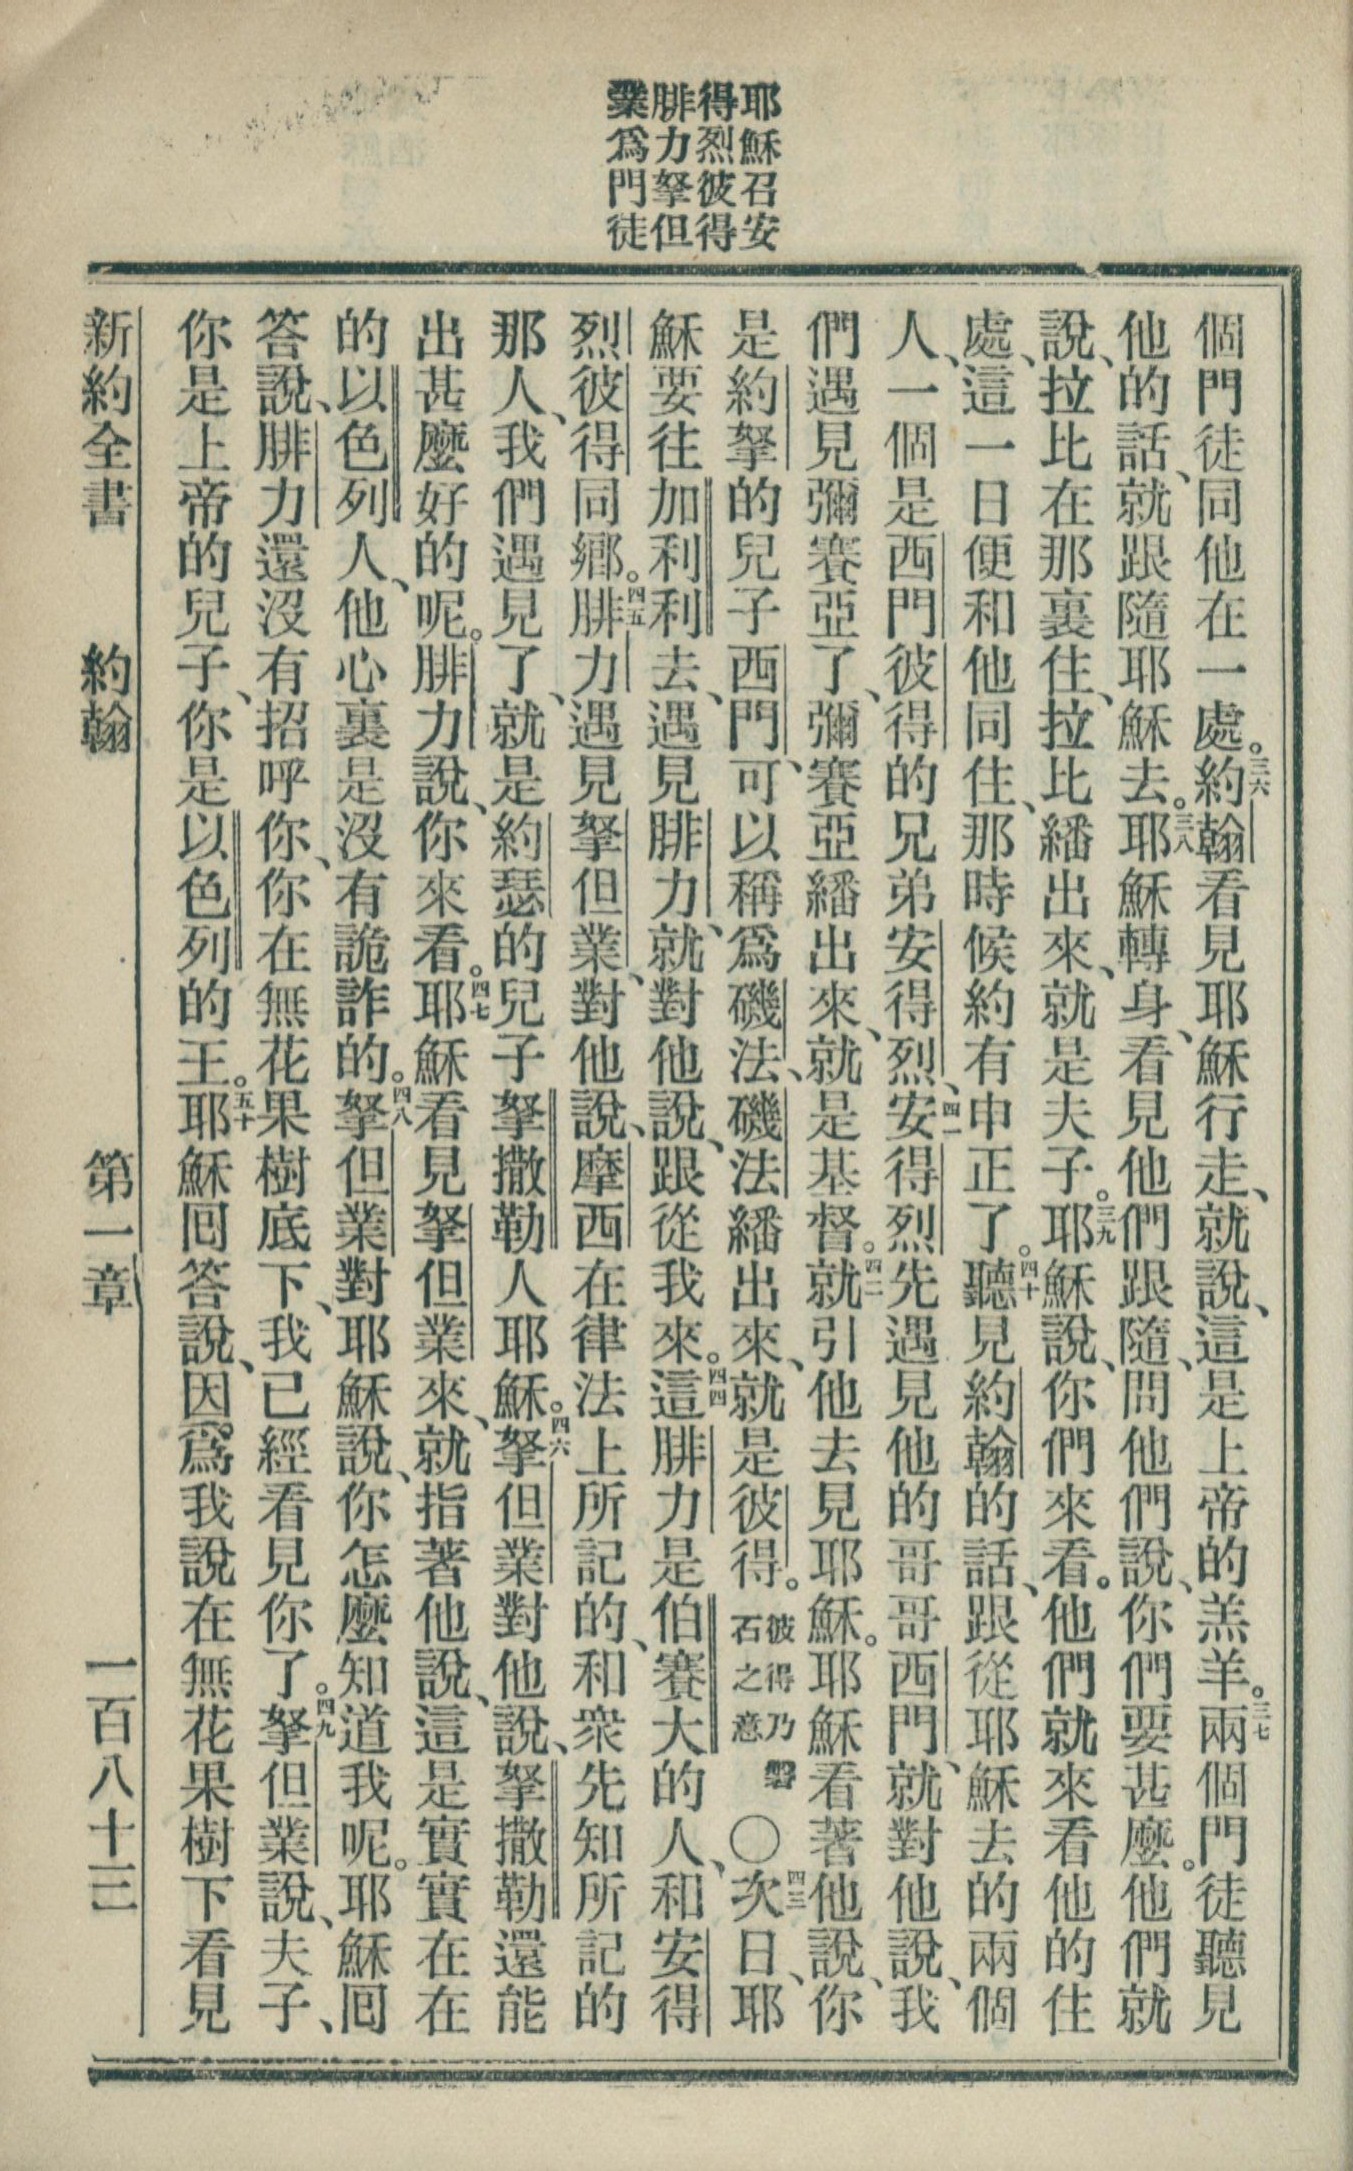 耶穌召安
得烈彼得
腓力拏但
業爲門徒
個門徒同他在一處。三六約翰看見耶穌行走、就說、這是上帝的羔羊。三七兩個門徒聽見
他的話、就跟隨耶穌去。三八耶穌轉身、看見他們跟隨、問他們說、你們要甚麼。他們就
說、拉比在那裏住、拉比繙出來、就是夫子。三九耶穌說、你們來看。他們就來看他的住
處、這一日便和他同住、那時候約有申正了。四十聽見約翰的話、跟從耶穌去的兩個
人、一個是西門彼得的兄弟安得烈、四一安得烈先遇見他的哥哥西門、就對他說、我
們遇見彌賽亞了、彌賽亞繙出來、就是基督。四二就引他去見耶穌。耶穌看著他說、你
是約拏的兒子西門、可以稱爲磯法、磯法繙出來、就是彼得。彼得乃磐石之意 〇四三次日、耶
穌要往加利利去、遇見腓力、就對他說、跟從我來。四四這腓力是伯賽大的人、和安得
烈彼得同鄉。四五腓力遇見拏但業、對他說、摩西在律法上所記的、和衆先知所記的
那人、我們遇見了、就是約瑟的兒子拏撒勒人耶穌。四六拏但業對他說、拏撒勒還能
出甚麼好的呢。腓力說、你來看。四七耶穌看見拏但業來、就指著他說、這是實實在在
的以色列人、他心裏是沒有詭詐的。四八拏但業對耶穌說、你怎麼知道我呢。耶穌囘
答說、腓力還沒有招呼你、你在無花果樹底下、我已經看見你了。四九拏但業說、夫子、
你是上帝的兒子、你是以色列的王。五十耶穌囘答說、因爲我說在無花果樹下看見
新約全書 約翰 第一章 一百八十三